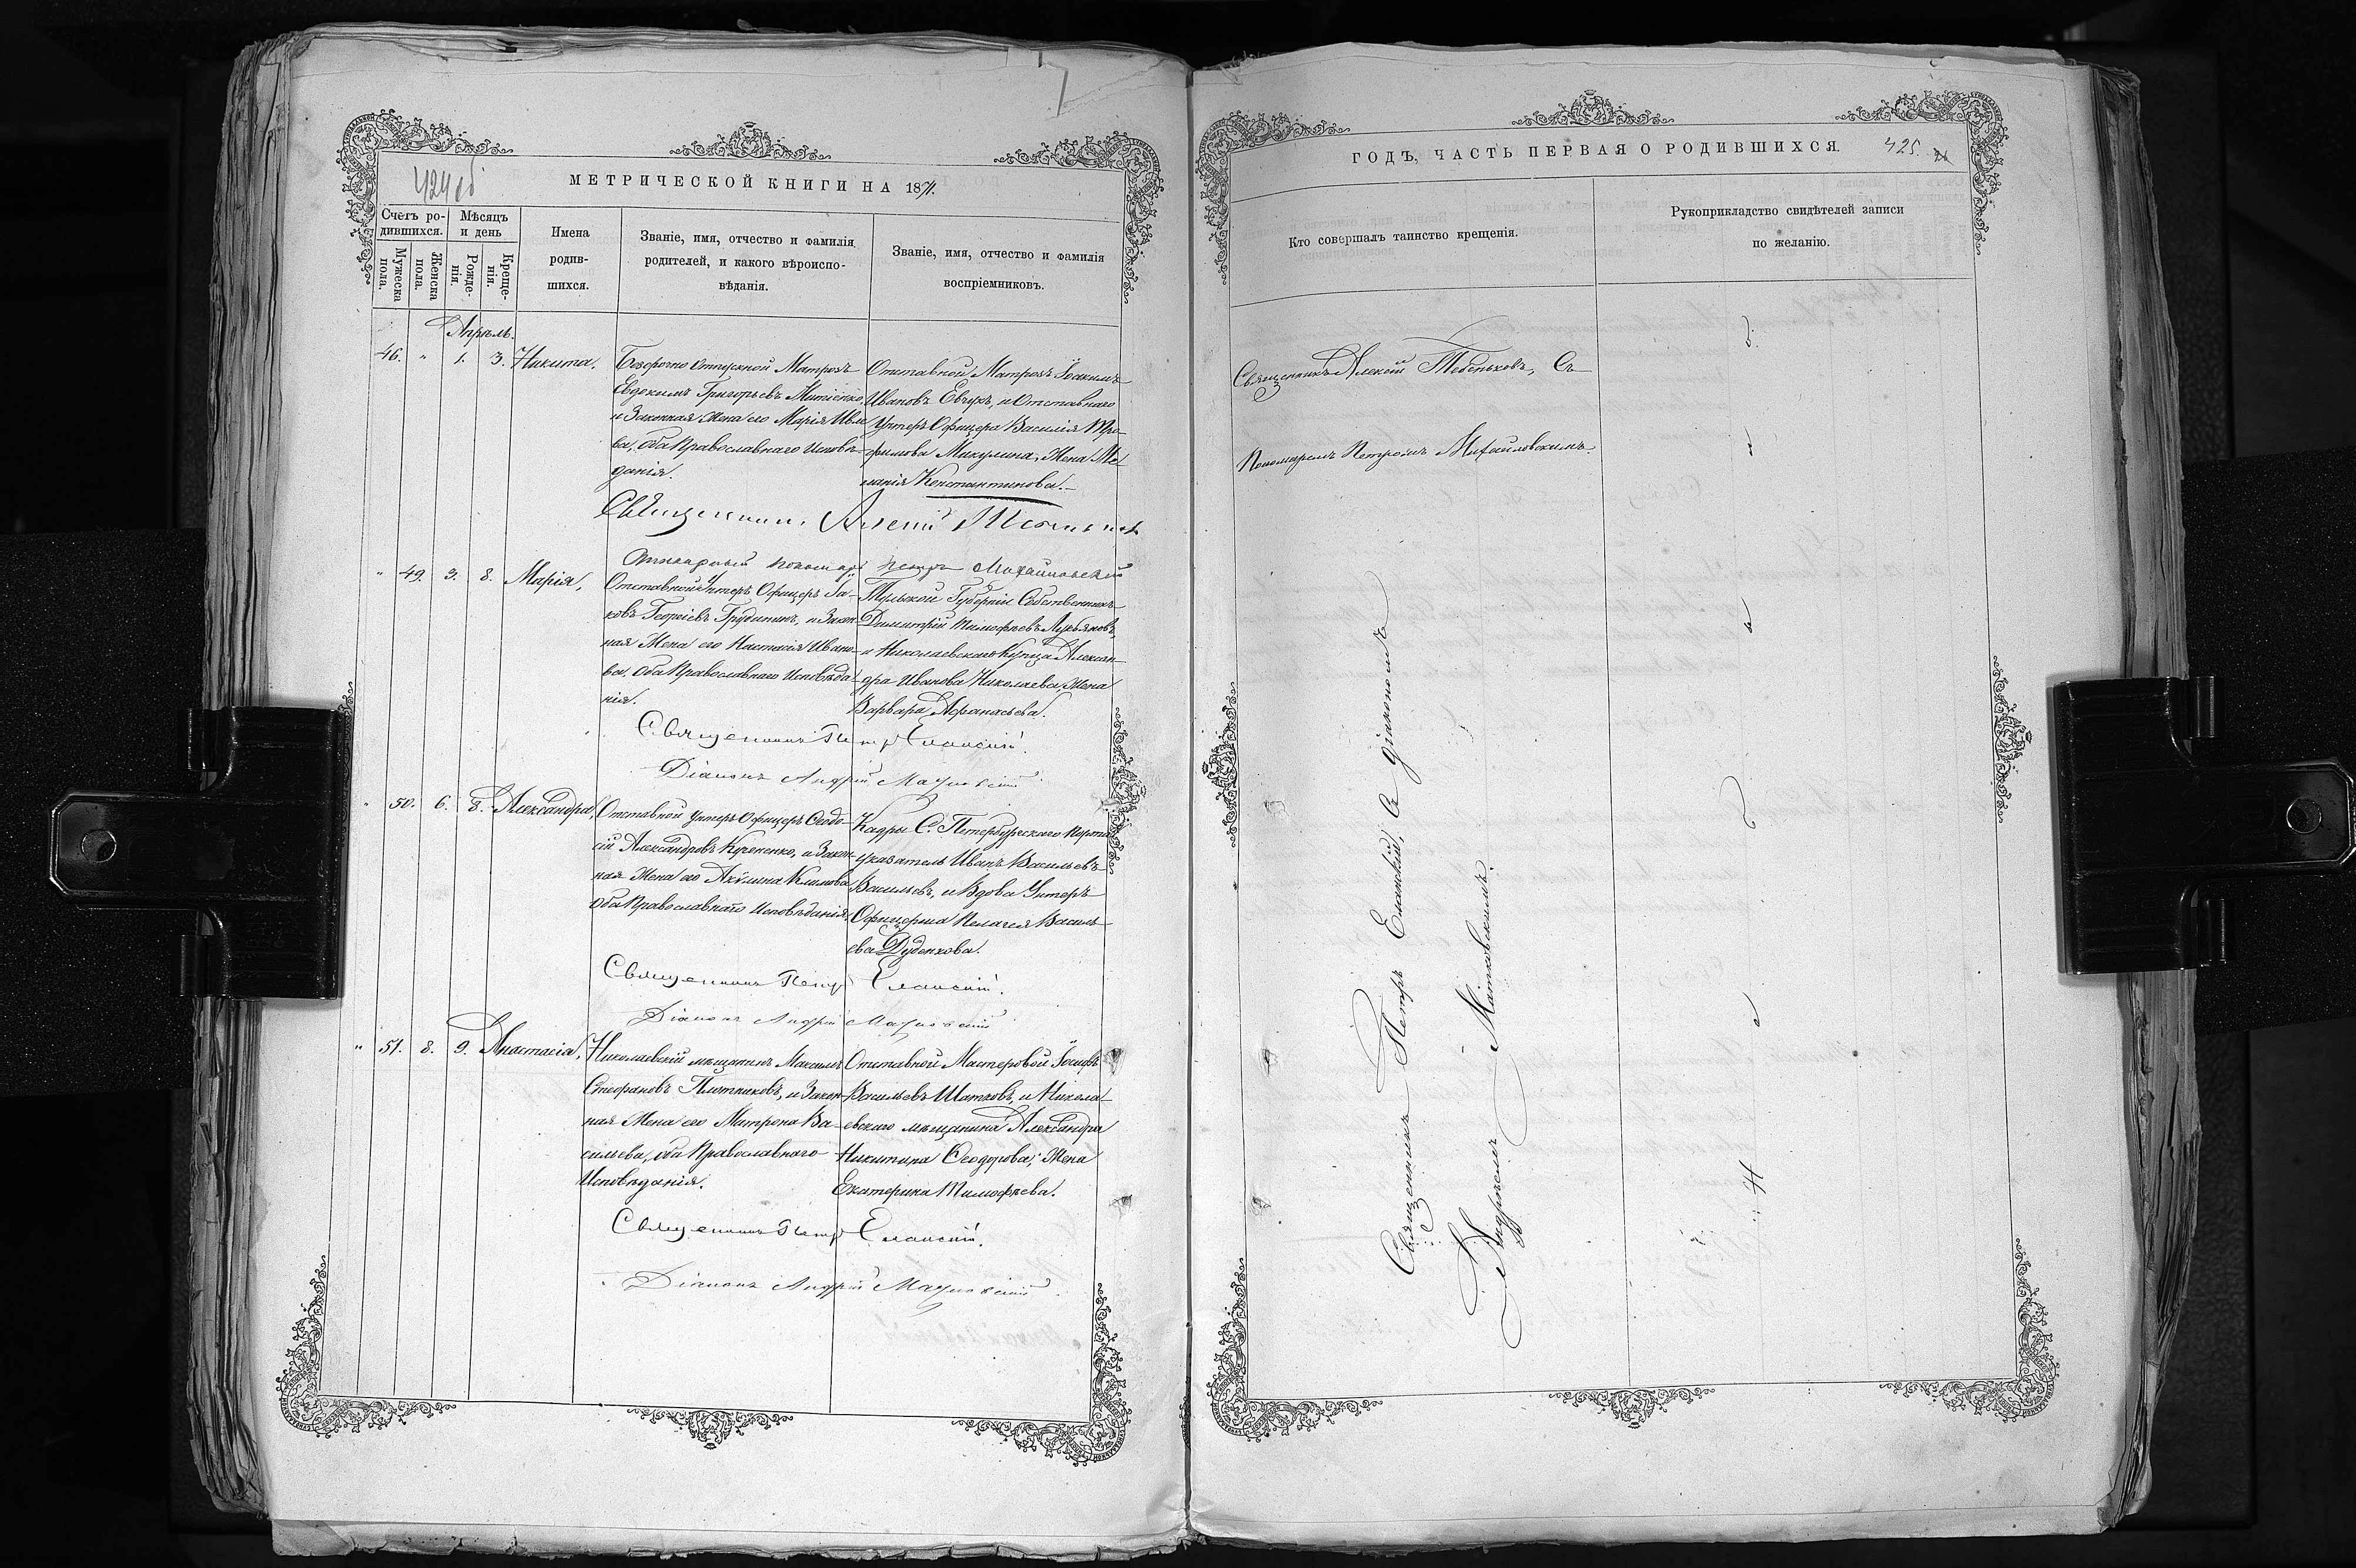 424 об
МЕТРИЧЕСКОЙ КНИГИ НА 1871.
Счетъ ро-
дившихся.
Мѣсяцъ
и день
Мужеска
пола.
Женска
пола.
Рожде-
нія.
Креще-
нія.
Имена
родив-
шихся.
Званіе, имя, отчество и фамилія
родителей, и какого вѣроиспо-
вѣданія.
Званіе, имя, отчество и фамилія
воспріемниковъ.
Апрѣль.
46. " 1. 3. Никита,
Безсрочно Отпускной Матрозъ
Евдокимъ Григорьевъ Митіенко
и Законная Жена его Марія Ивле
ва, Оба Православнаго Исповѣ-
данія.
Отставной Матрозъ Іоакимъ
Ивановъ Евчукъ, и Отставнаго
Унтеръ Офицера Василія Тро-
фимова Микулина, Жена Ме-
ланія Константинова.
Священникъ Алексій Тебеньковъ
пономарь Петръ Михайловскій
" 49. 3. 8. Марія,
Отставной Унтеръ Офицеръ Іа-
ковъ Георгіевъ Грудининъ, и Закон-
ная Жена его Настасія Ивано-
ва, Оба Православнаго Исповѣда-
нія.
Тульской Губерніи Собственникъ
Димитрій Тимофѣевъ Лукьяновъ,
и Николаевскаго Купца Алексан-
дра Иванова Николаева, Жена
Варвара Афанасьева.
Священникъ Петръ Еланскій.
Діаконъ Андрей Матковскій
" 50. 6. 8. Александра,
Отставной Унтеръ Офицеръ Ѳеодо-
сій Александровъ Корененко, и Закон-
ная Жена его Акулина Климова
Оба Православнаго Исповѣданія.
Кадры С. Петербургскаго Порта
указатель Иванъ Васильевъ
Васильевъ, и Вдова Унтеръ
Офицерша Пелагея Василь-
ева Дуденкова.
Священникъ Петръ Еланскій.
Діаконъ Андрей Матковскій
" 51. 8. 9. Анастасія,
Николаевскій мѣщанинъ Максимъ
Стефановъ Плотниковъ, и Закон-
ная Жена его Матрона Ва-
сильева, оба Православнаго
Исповѣданія.
Отставной Мастеровой Іосифъ
Васильевъ Шатковъ, и Никола-
евскаго мѣщанина Александра
Никитина Ѳеодорова, Жена
Екатерина Тимофѣева.
Священникъ Петръ Еланскій.
Діаконъ Андрей Матковскій
ГОДЪ, ЧАСТЬ ПЕРВАЯ О РОДИВШИХСЯ.
425.
Кто совершалъ таинство крещенія.
Рукоприкладство свидѣтелей записи
по желанію.
Священникъ Алексій Тебеньковъ, Съ
Пономаремъ Петромъ Михайловскимъ.
Священникъ Петръ Еланскій, съ діакономъ
Андреемъ Матковскимъ.